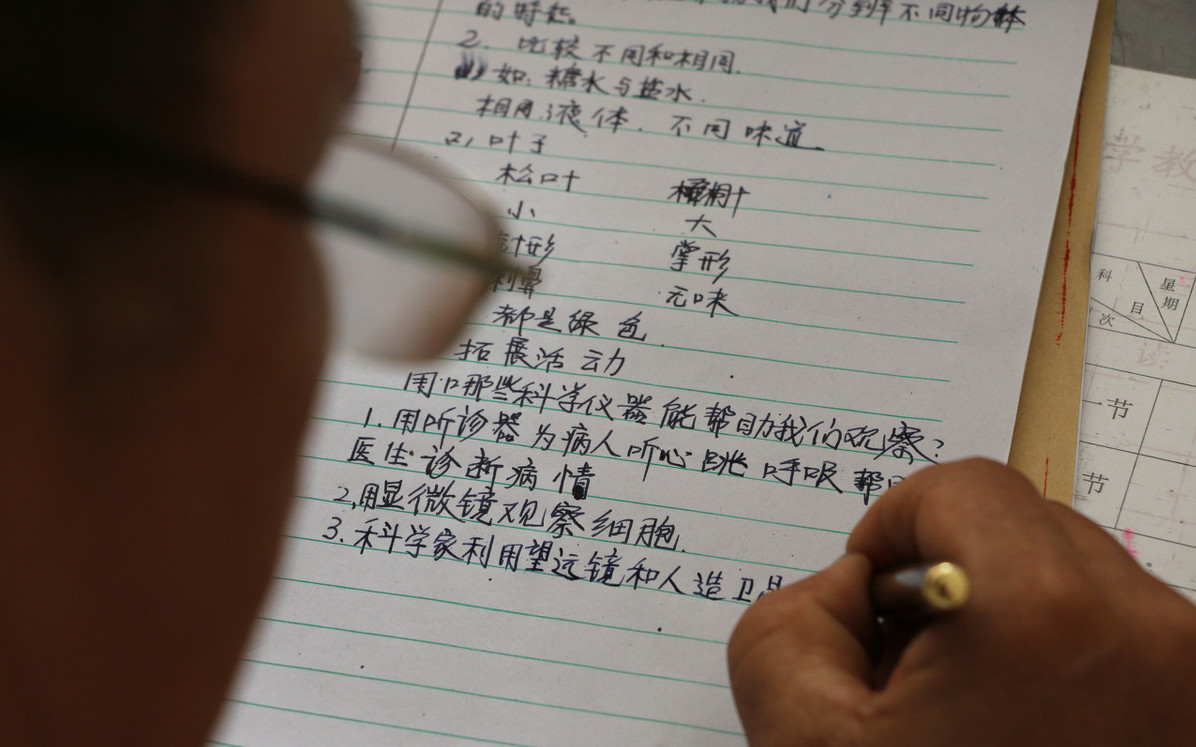 们分辨不同物体
的特征。
2. 比较不同和相同.
(1) 如: 糖水与盐水.
相同:液体. 不同味道
2, 叶子
松叶 樟树叶
小 大
针形 掌形
刺鼻 无味
都是绿色.
拓展活动
用口那些科学仪器能帮助我们观察?
1. 用听诊器为病人听心跳呼吸帮
医生诊断病情
2,用显微镜观察细胞.
3. 科学家利用望远镜和人造卫星
学教
科目 星期
次
读
一节
节